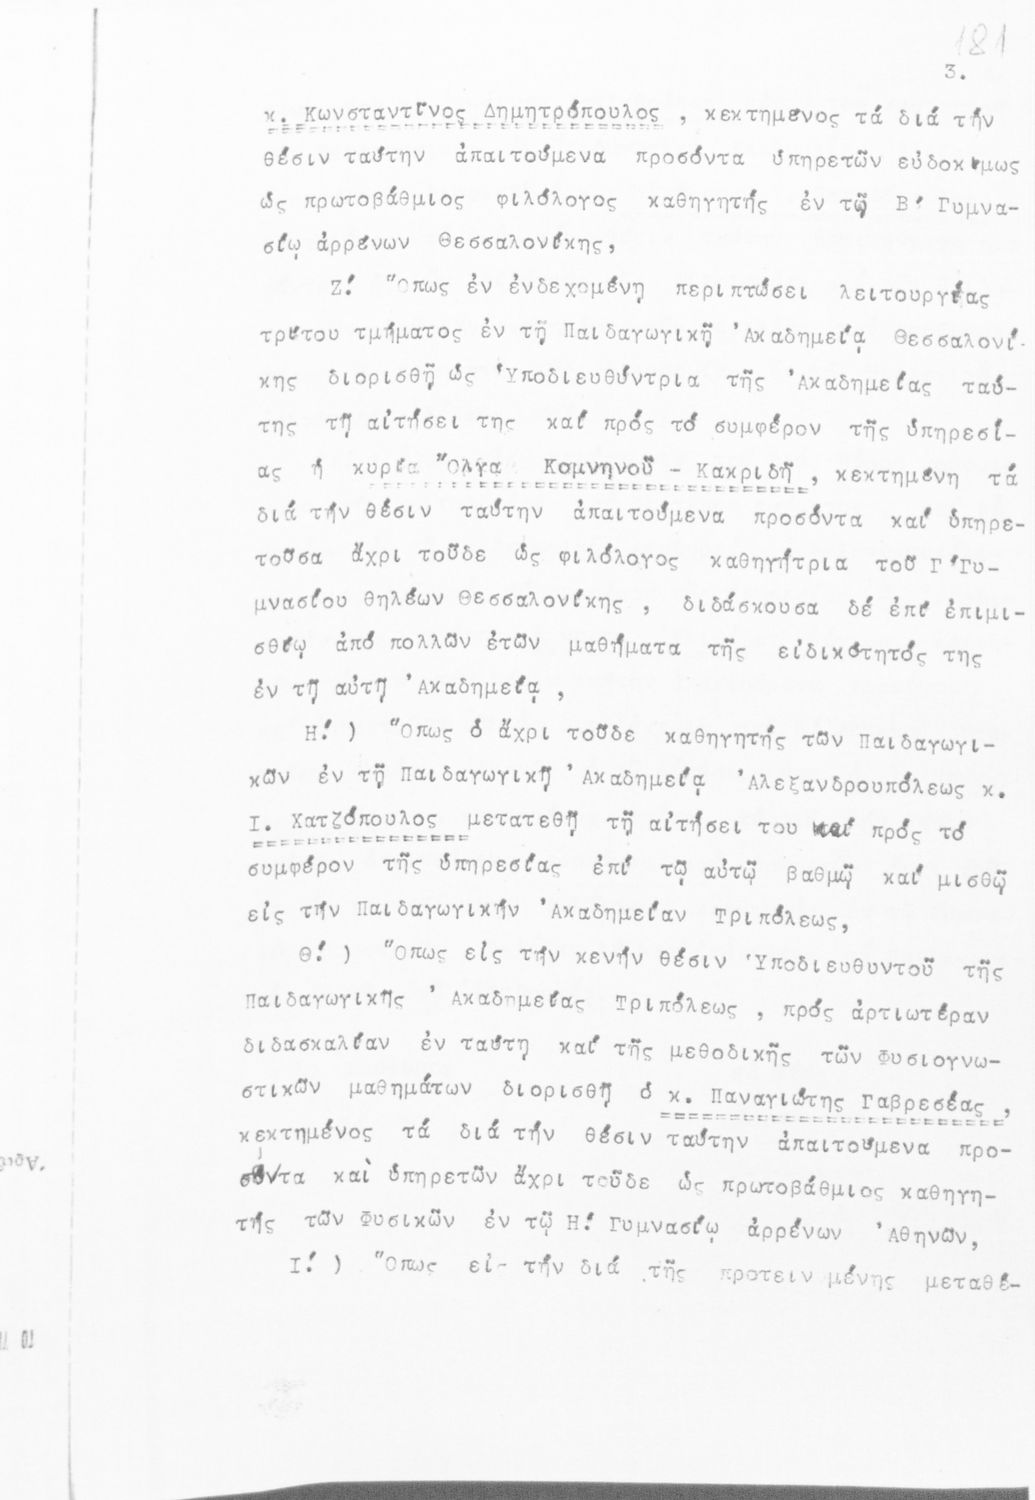 181
3.
κ. Κωνσταντῖνος Δημητρόπουλος , κεκτημένος τά διά τήν
θέσιν ταύτην ἀπαιτούμενα προσόντα ὑπηρετῶν εὐδοκίμως
ὡς πρωτοβάθμιος φιλόλογος καθηγητής ἐν τῷ Β΄ Γυμνα-
σίῳ ἀρρένων Θεσσαλονίκης,
Ζ΄. Ὅπως ἐν ἐνδεχομένῃ περιπτώσει λειτουργίας
τρίτου τμήματος ἐν τῇ Παιδαγωγικῇ Ἀκαδημείᾳ Θεσσαλονί-
κης διορισθῇ ὡς Ὑποδιευθύντρια τῆς Ἀκαδημείας ταύ-
της τῇ αἰτήσει της καί πρός τό συμφέρον τῆς ὑπηρεσί-
ας ἡ κυρία Ὄλγα Κομνηνοῦ - Κακριδῆ , κεκτημένη τά
διά τήν θέσιν ταύτην ἀπαιτούμενα προσόντα καί ὑπηρε-
τοῦσα ἄχρι τοῦδε ὡς φιλόλογος καθηγήτρια τοῦ Γ΄Γυ-
μνασίου θηλέων Θεσσαλονίκης , διδάσκουσα δέ ἐπί ἐπιμι-
σθίῳ ἀπό πολλῶν ἐτῶν μαθήματα τῆς εἰδικότητός της
ἐν τῇ αὐτῇ Ἀκαδημείᾳ ,
Η΄. ) Ὅπως ὁ ἄχρι τοῦδε καθηγητής τῶν Παιδαγωγι-
κῶν ἐν τῇ Παιδαγωγικῇ Ἀκαδημείᾳ Ἀλεξανδρουπόλεως κ.
Ι. Χατζόπουλος μετατεθῇ τῇ αἰτήσει του καί πρός τό
συμφέρον τῆς ὑπηρεσίας ἐπί τῷ αὐτῷ βαθμῷ καί μισθῷ
εἰς τήν Παιδαγωγικήν Ἀκαδημείαν Τριπόλεως,
Θ΄. ) Ὅπως εἰς τήν κενήν θέσιν Ὑποδιευθυντοῦ τῆς
Παιδαγωγικῆς Ἀκαδημείας Τριπόλεως , πρός ἀρτιωτέραν
διδασκαλίαν ἐν ταύτῃ καί τῆς μεθοδικῆς τῶν Φυσιογνω-
στικῶν μαθημάτων διορισθῇ ὁ κ. Παναγιώτης Γαβρεσέας ,
κεκτημένος τά διά τήν θέσιν ταύτην ἀπαιτούμενα προ-
σόντα καὶ ὑπηρετῶν ἄχρι τοῦδε ὡς πρωτοβάθμιος καθηγη-
τής τῶν Φυσικῶν ἐν τῷ Η΄. Γυμνασίῳ ἀρρένων Ἀθηνῶν,
Ι΄. ) Ὅπως εἰ- τήν διά τῆς προτειν μένης μεταθέ-